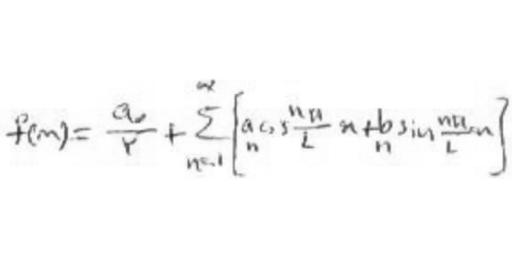 f(x) = \frac{a_0}{2} + \sum_{n=1}^{\infty} \left[ a_n \cos \frac{n\pi}{L} x + b_n \sin \frac{n\pi}{L} x \right]